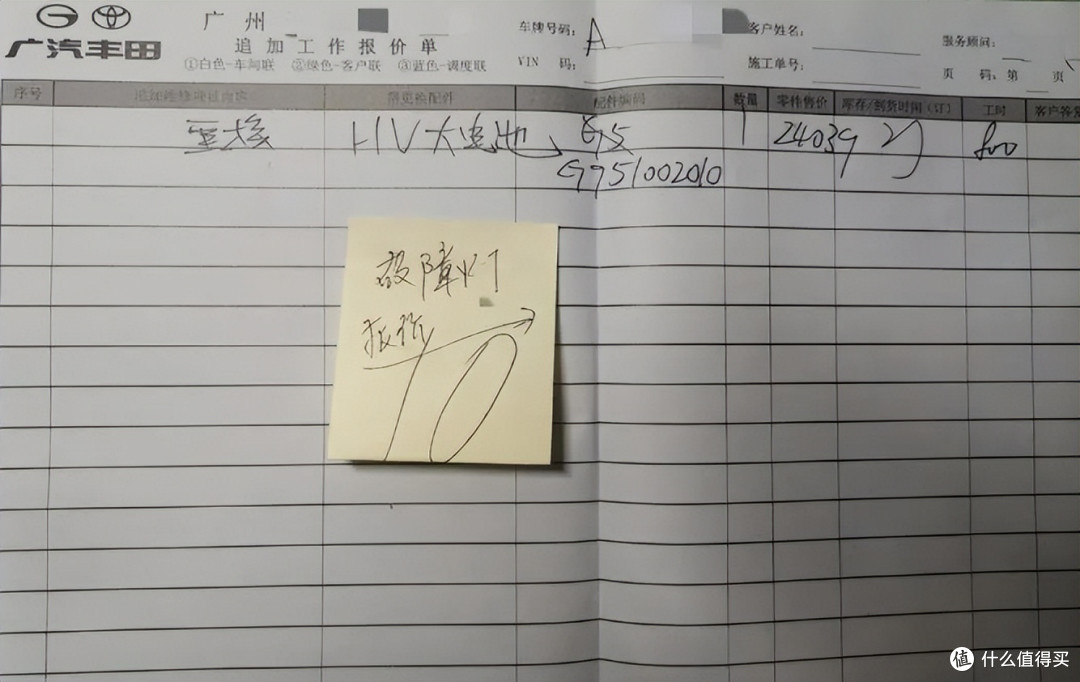 广汽丰田
广 州
追加工作报价单
①白色-车间联 ②绿色-客户联 ③蓝色-调度联
车牌号码: A
VIN 码:
客户姓名:
施工单号:
服务顾问:
页 码: 第 页
序号 追加维修项目内容 需更换配件 配件编码 数量 零件售价 库存/到货时间(订) 工时 客户答复
HV大电池 G5 1 24039 订 800
G951002010
故障灯
报价
什么值得买